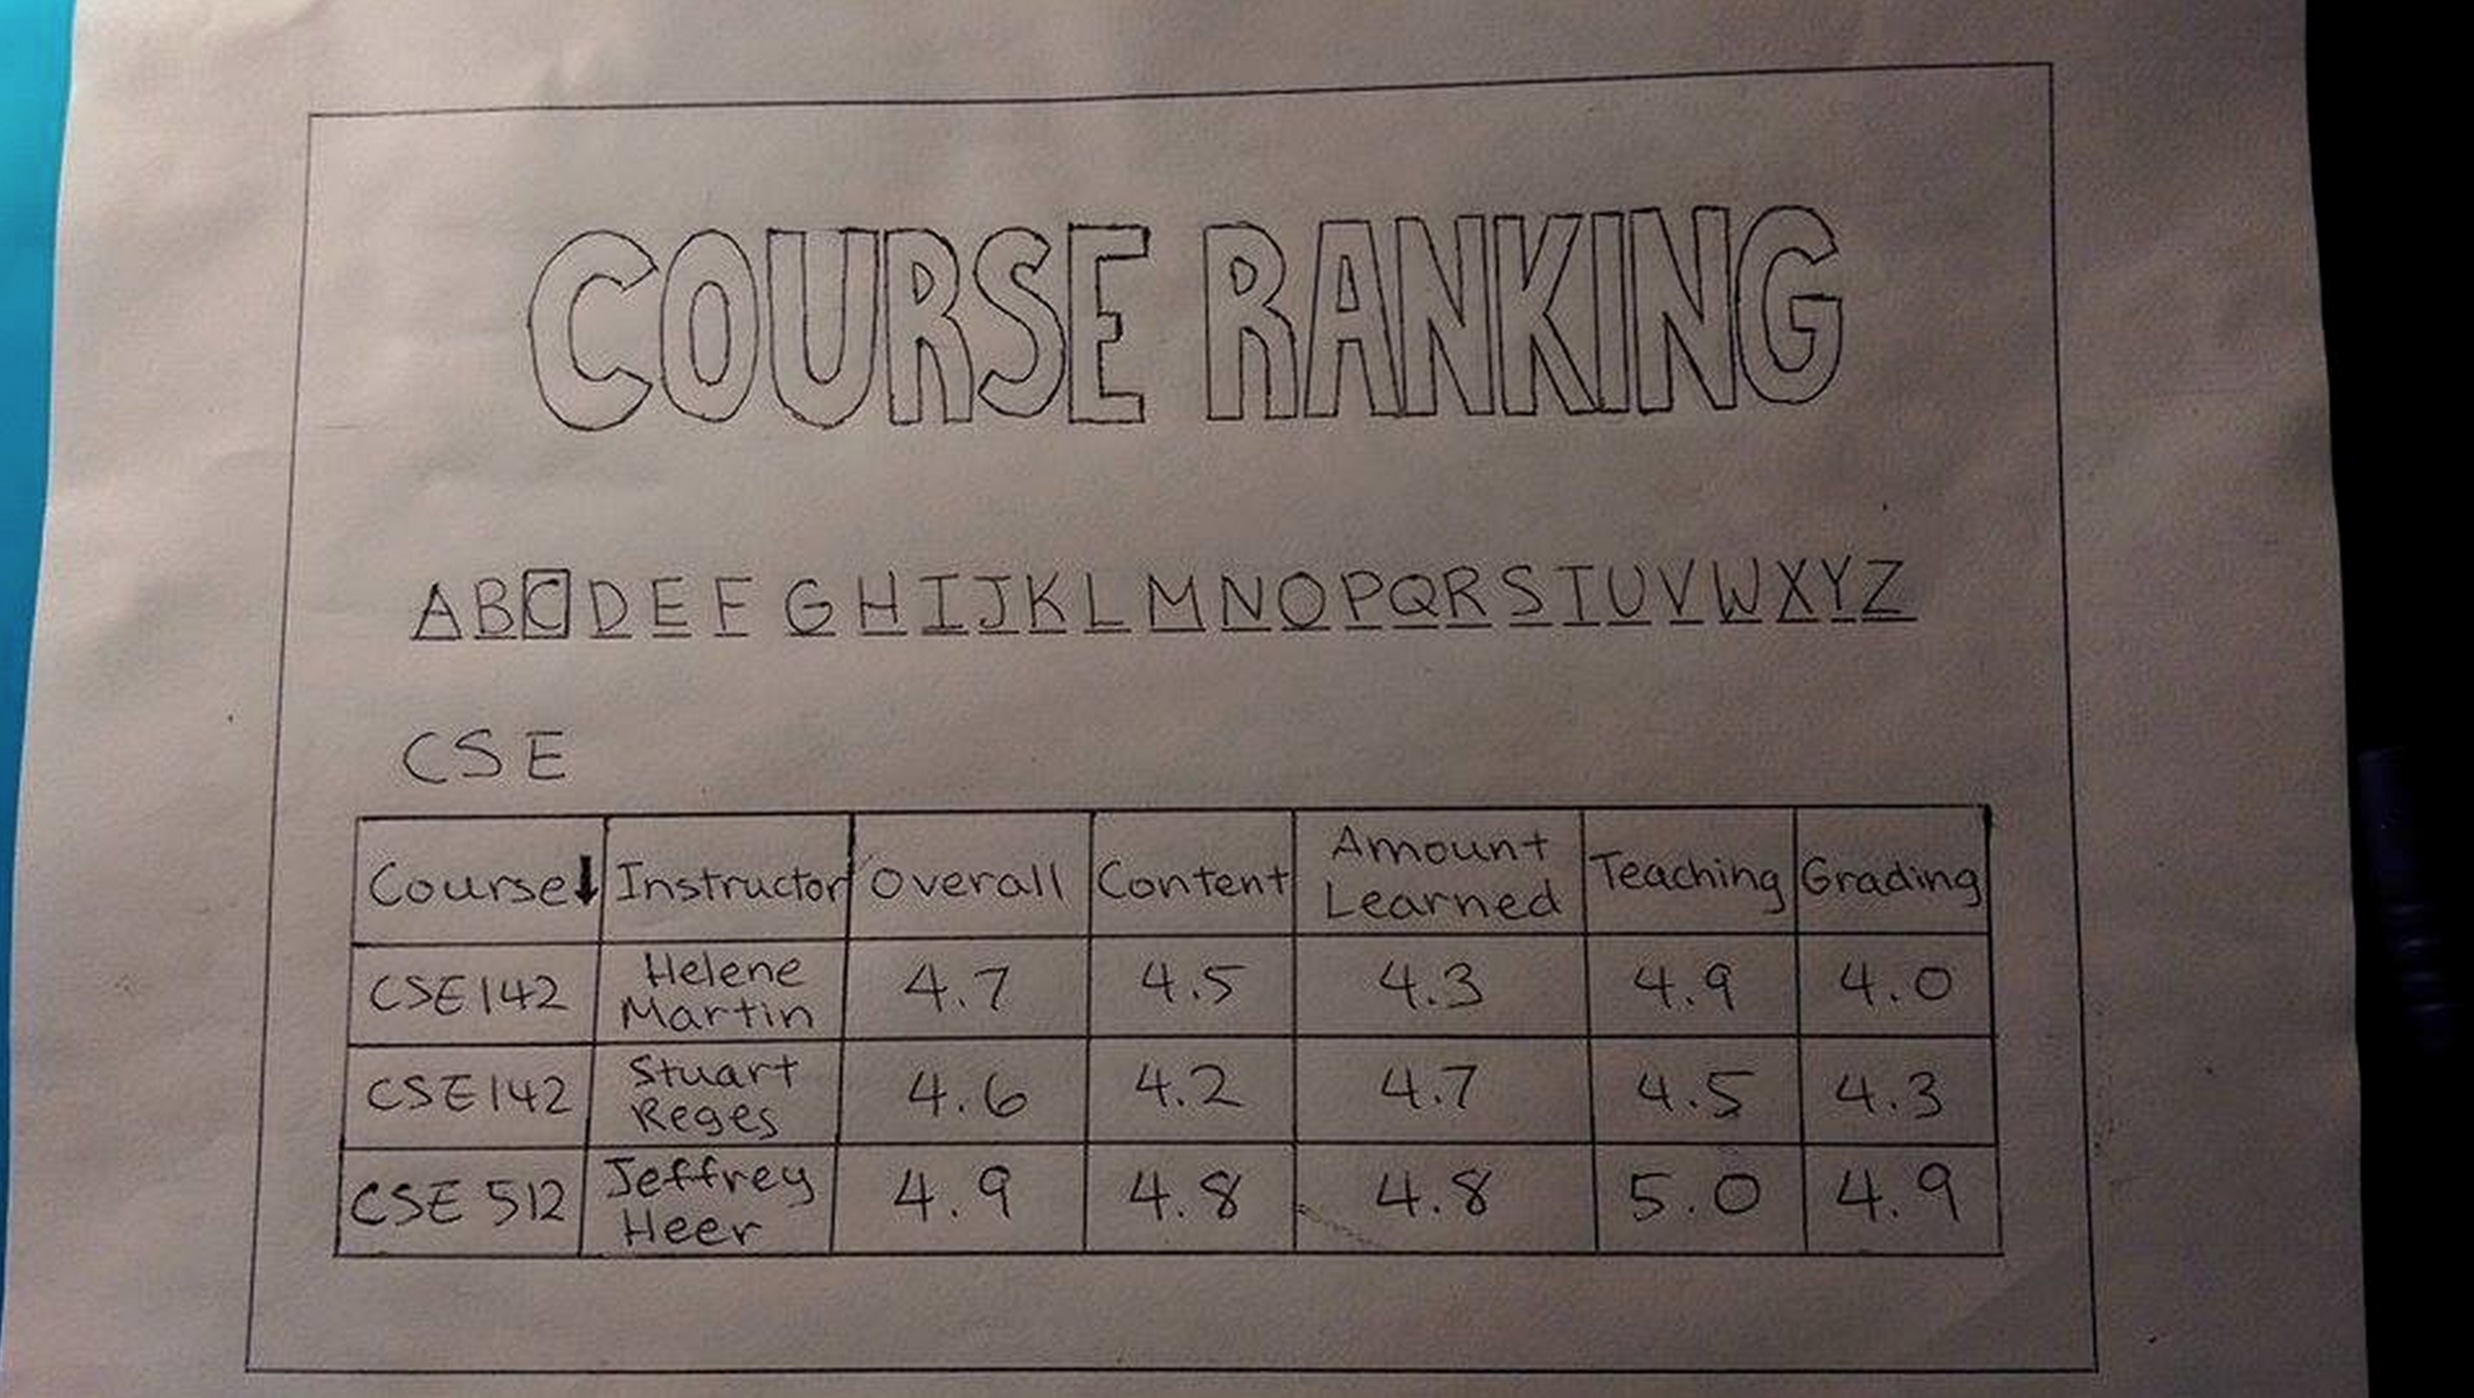 COURSE RANKING
A B C D E F G H I J K L M N O P Q R S T U V W X Y Z
CSE
Course↓ Instructor Overall Content Amount Learned Teaching Grading
CSE142 Helene Martin 4.7 4.5 4.3 4.9 4.0
CSE142 Stuart Reges 4.6 4.2 4.7 4.5 4.3
CSE 512 Jeffrey Heer 4.9 4.8 4.8 5.0 4.9